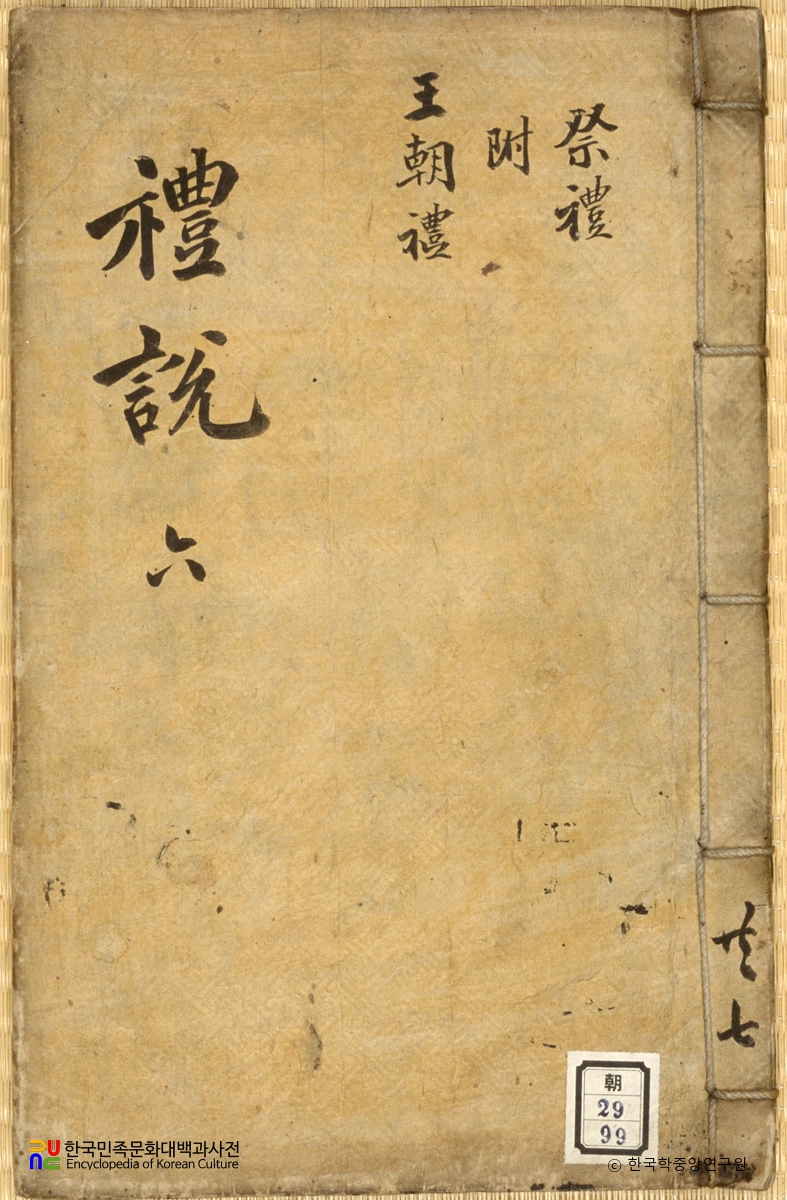 祭禮
附
王朝禮
禮說 六
共七
朝
29
99
한국민족문화대백과사전
Encyclopedia of Korean Culture
© 한국학중앙연구원